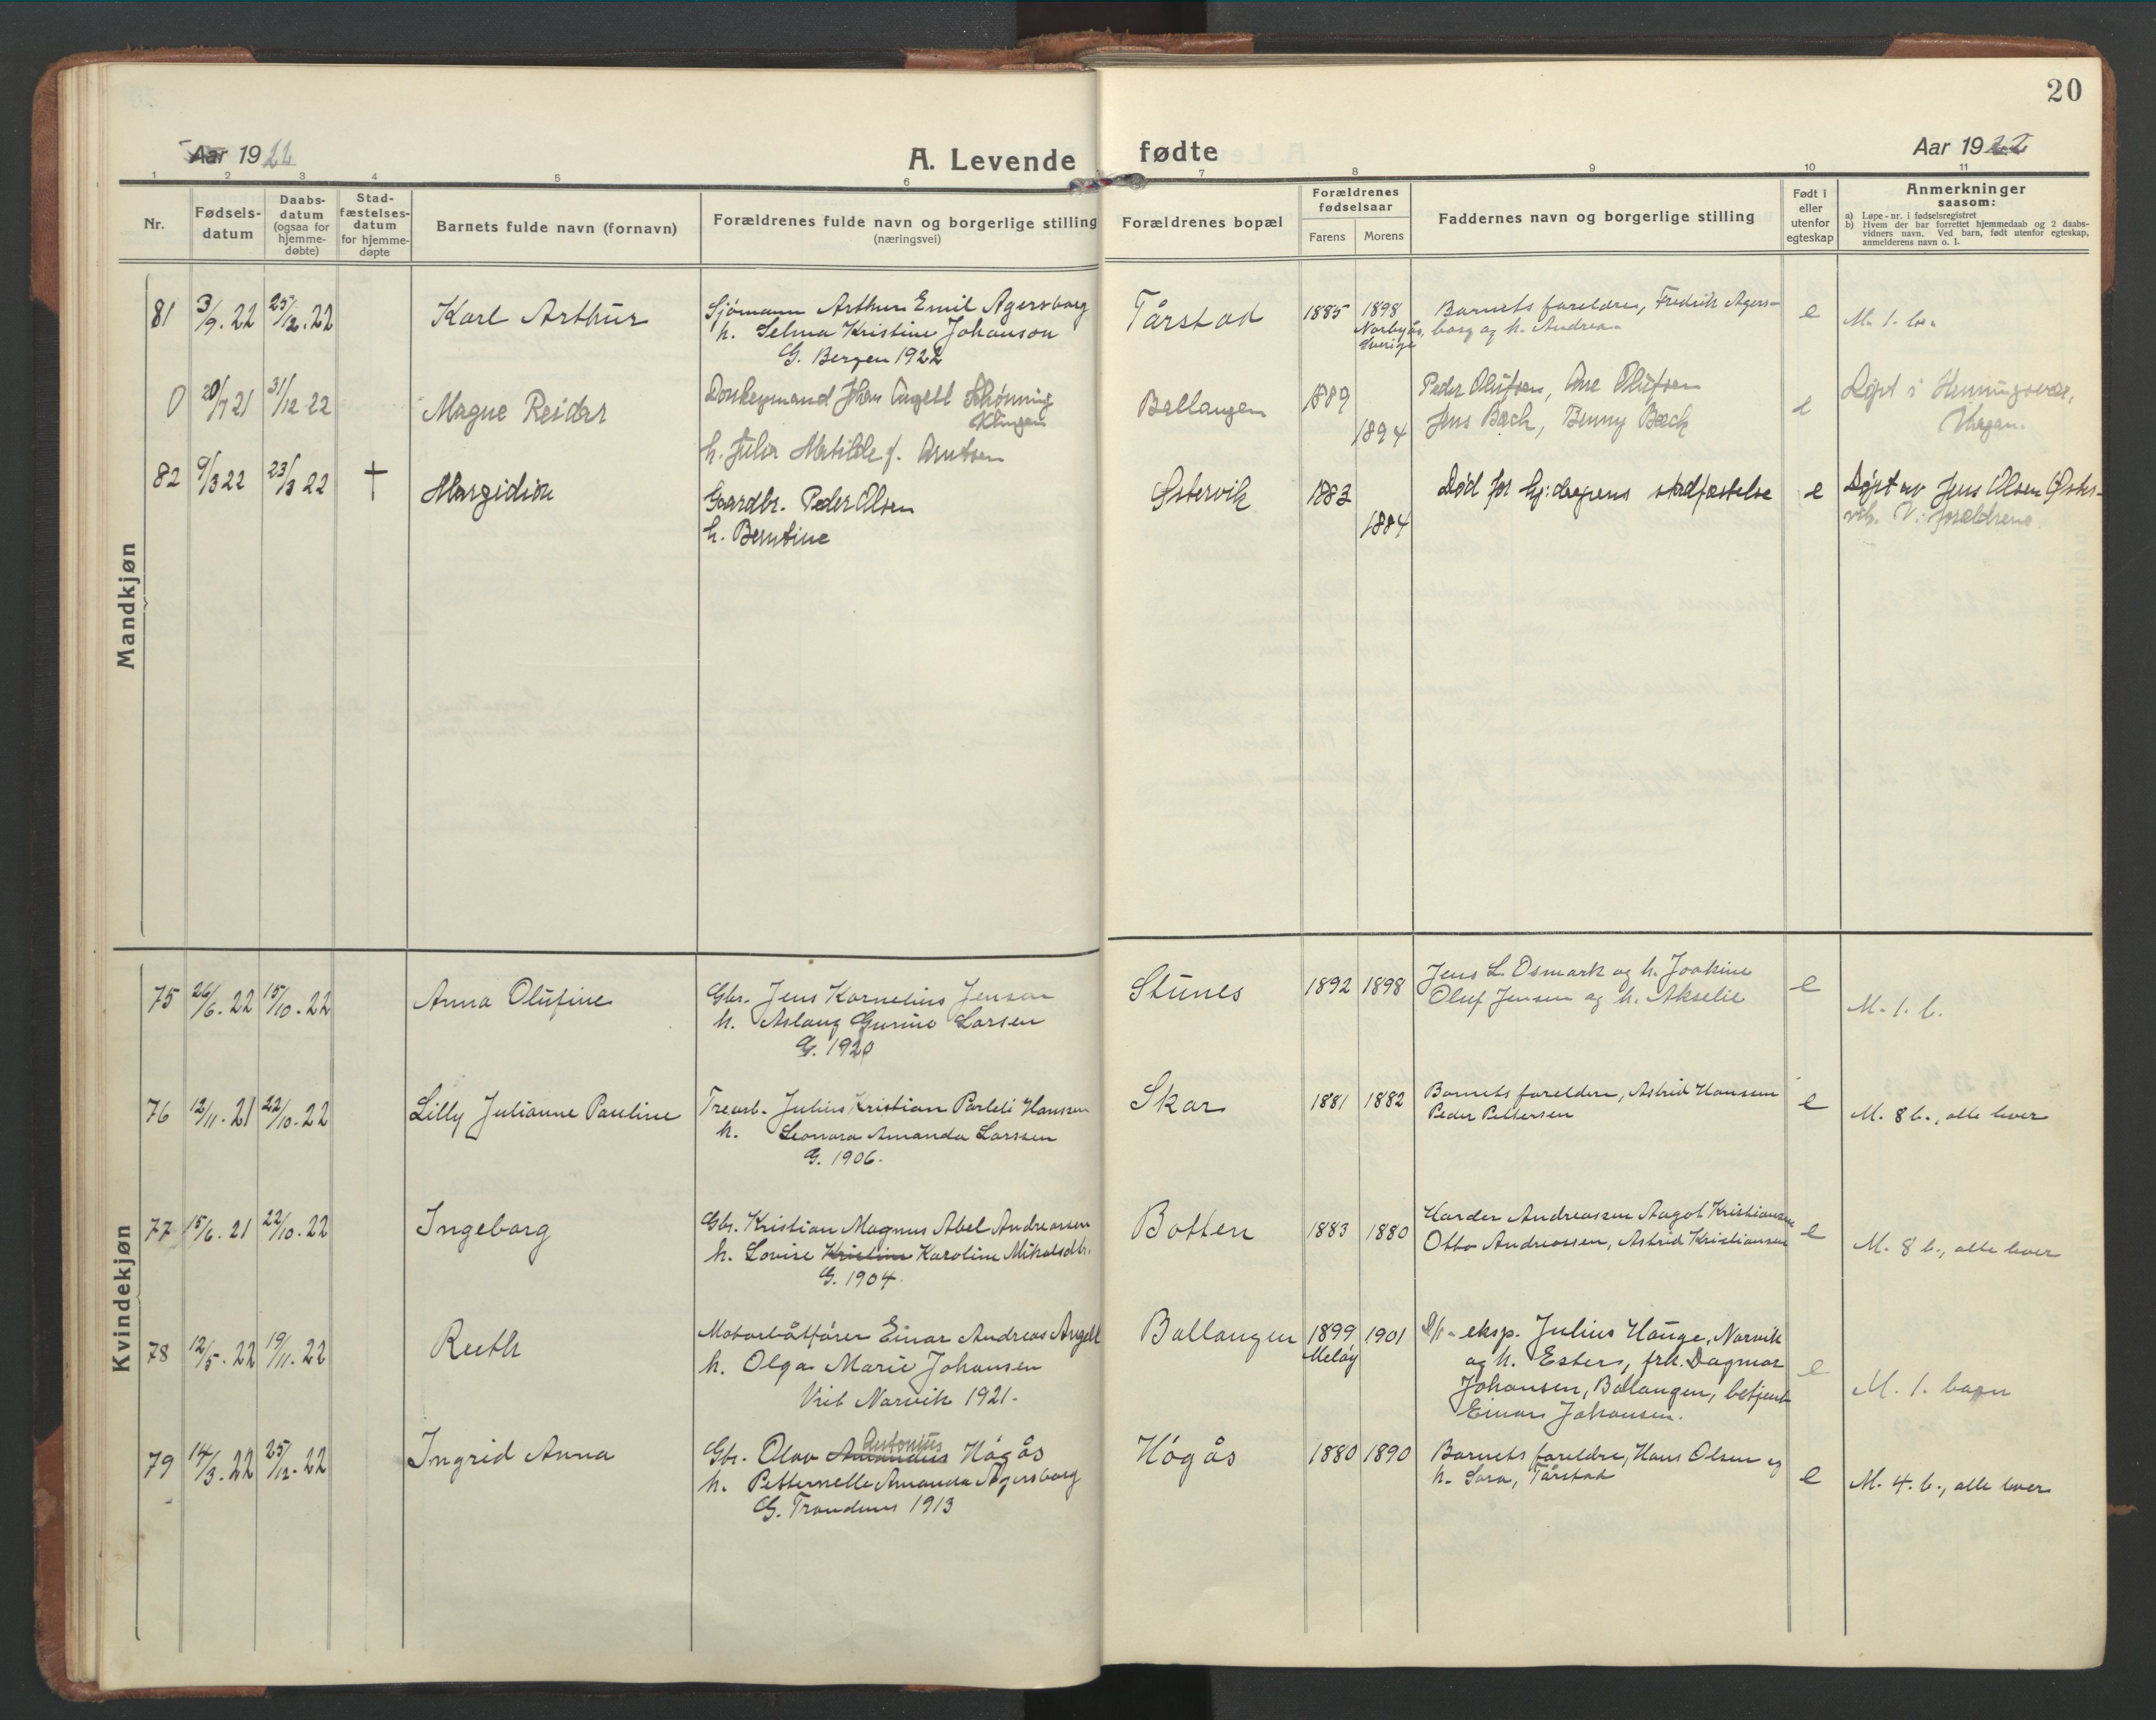 20
Aar 1922
A. Levende fødte
Aar 1922
1 2 3 4 5 6 7 8 9 10 11
Nr.
Fødsels-
datum
Daabs-
datum
(ogsaa for
hjemme-
døbte)
Stad-
fæstelses-
datum
for hjemme-
døpte
Barnets fulde navn (fornavn)
Forældrenes fulde navn og borgerlige stilling
(næringsvei)
Forældrenes bopæl
Forældrenes
fødselsaar
Farens Morens
Faddernes navn og borgerlige stilling
Født i
eller
utenfor
egteskap
Anmerkninger
saasom:
a) Løpe-nr. i fødselsregistret
b) Hvem der har forrettet hjemmedaab og 2 daabs-
vidners navn. Ved barn, født utenfor egteskap,
anmelderens navn o. l.
Mandkjøn
81 3/9. 22 25/12. 22 Karl Arthur
Sjömann Arthur Emil Agersborg
h. Selma Kristine Johanson
G. Bergen 1922
Tårstad 1885 1898
Norbyås,
Sverige
Barnets foreldre, Fredrik Agers-
borg og h. Andrea
e M. 1. b.
0 20/7 21 31/12 22 Magne Reidar
Donkeymand Johan Angell Schønning
Klingen
h. Julia Matilde f. Arntsen
Ballangen 1889 1894
Peder Olufsen, Ane Olufsen
Jens Bach, Benny Bach
e Døpt i Henningsvær,
Vågan.
82 9/3 22 23/3 22 † Margidion
Gaardbr. Peder Olsen
h. Berntine
Østervik 1883 1884
Død før hj:daapens stadfæstelse e
Døpt av Jens Olsen Øster-
vik. V: forældrene.
Kvindekjøn
75 26/6. 22 15/10. 22 Anna Olufine
Gbr. Jens Kornelius Jenson
h. Aslaug Gurine Larsen
G. 1920
Stunes 1892 1898
Jens L. Osmark og h. Joakine
Oluf Jensen og h. Akselie
e M. 1. b.
76 12/11. 21 22/10. 22 Lilly Julianne Pauline
Trearb. Julius Kristian Parleli Hansen
h. Leonora Amanda Larssen
G. 1906.
Skar 1881 1882
Barnets foreldre, Astrid Hansen
Peder Pettersen
e M. 8 b., alle lever
77 15/6. 21 22/10. 22 Ingeborg
Gbr. Kristian Magnus Abel Andreassen
h. Lovise Kristine Karoline Mikalsdtr.
G. 1904.
Botten 1883 1880
Harder Andreassen Aagot Kristiansen
Otto Andreassen, Astrid Kristiansen
e M. 8 b., alle lever
78 12/5. 22 19/11. 22 Ruth
Motorbåtfører Einar Andreas Angell
h. Olga Marie Johansen
Viet Narvik 1921.
Ballangen 1899 1901
Meløy
D/s-eksp. Julius Hauge, Narvik
og h. Esters, frk. Dagmar
Johansen, Ballangen, betjent
Einar Johansen.
e M. 1. barn
79 14/3. 22 25/12. 22 Ingrid Anna
Antonius
Gbr. Olav Amandus Högås
h. Petternelle Amanda Agersborg
G. Trondenes 1913
Högås 1880 1890
Barnets foreldre, Hans Olsen og
h. Sara, Tårstad
e M. 4. b., alle lever